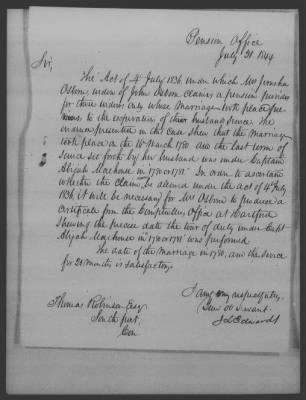 Pension Office
July 31. 1844
Sir,
The Act of 4 July 1836, under which Mrs Jerusha
Osborn, widow of John Osborn claims a pension provides
for those widows only whose Marriage took place pre-
vious to the expiration of their husbands service. The
evidence presented in the case shew that the Marriage
took place on the 16 March 1780 and the last term of
service set forth by her husband was under Captain
Abijah in 1780 or 1781. In order to ascertain
whether the Claim be allowed under the act of 4th July
1836, it will be necessary for Mrs Osborn to produce a
Certificate from the Comptrollers Office at Hartford
Shewing the precise date the tour of duty under Capt
Abijah in 1780 or 1781 was performed.
The date of the Marriage in 1780, and the Service
for months is satisfactory.
I am very respectfully,
Your Obt Servant.
J L Edwards
Thomas Robinson Esq
South port
Con